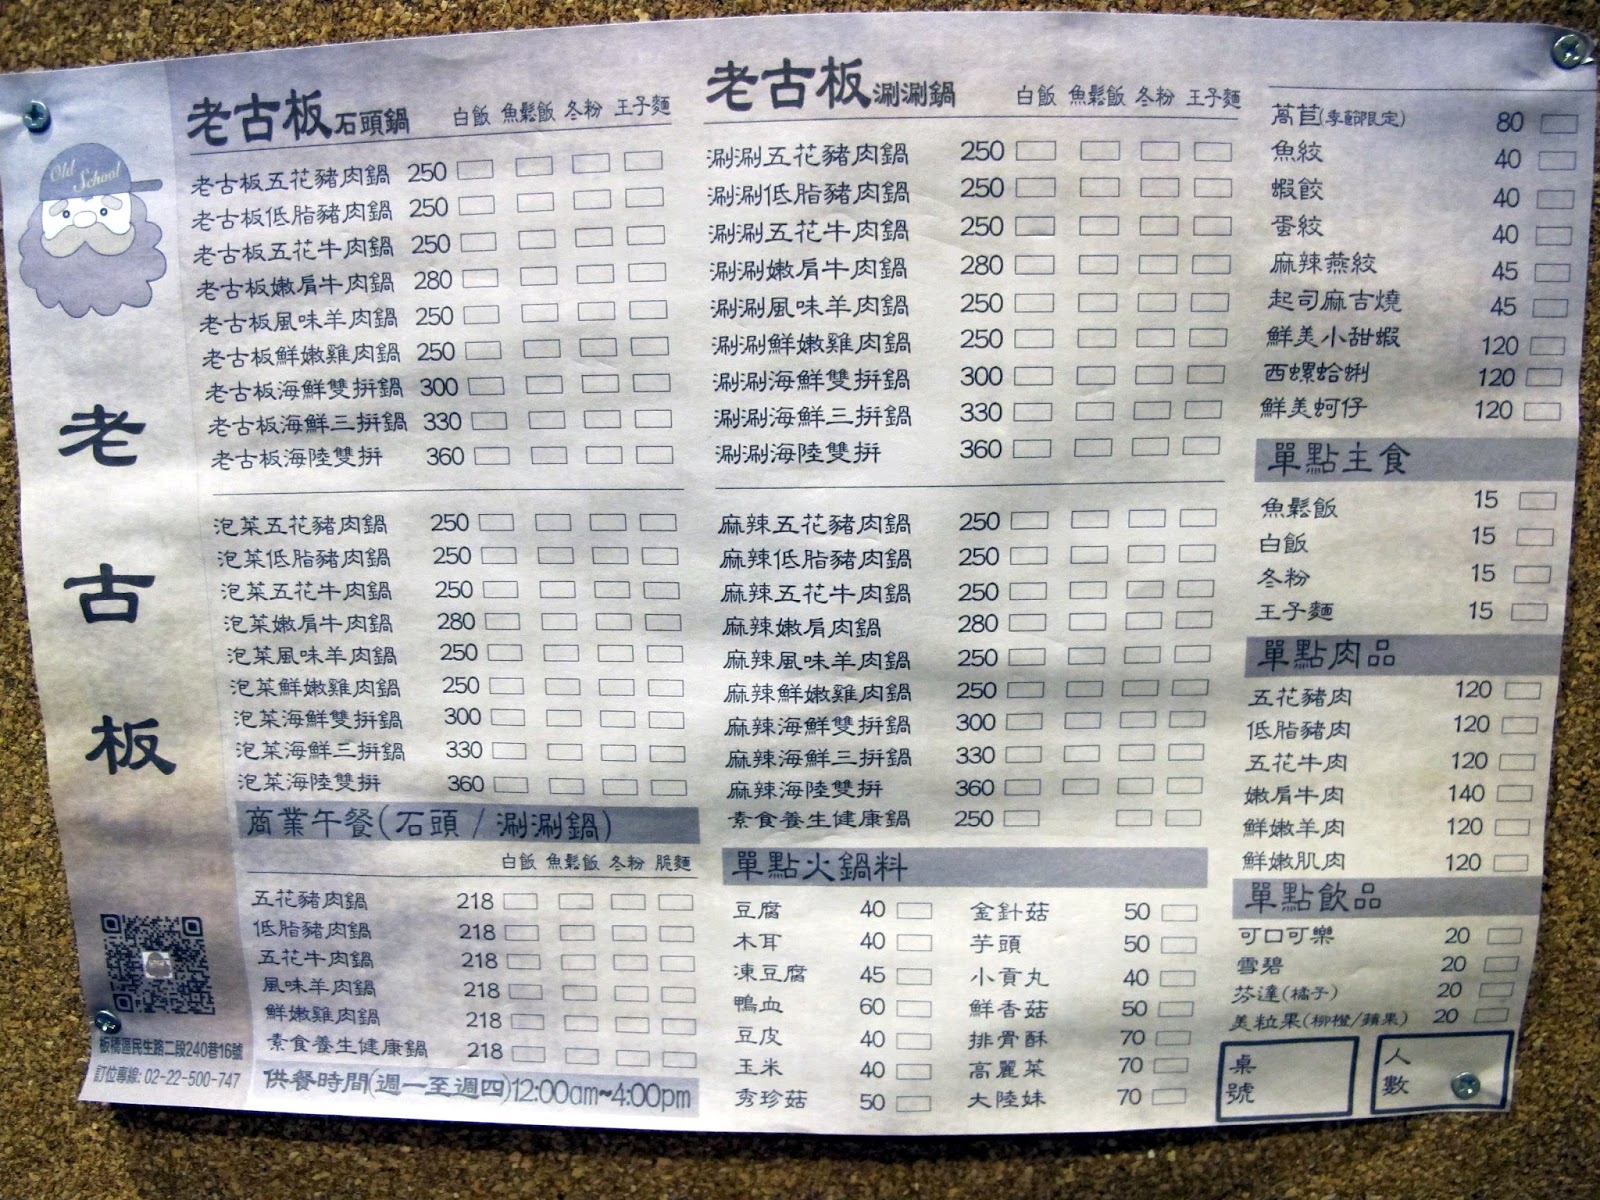 Old School
老古板
板橋區民生路二段240巷16號
訂位專線: 02-22-500-747
老古板石頭鍋 白飯 魚鬆飯 冬粉 王子麵
老古板五花豬肉鍋 250
老古板低脂豬肉鍋 250
老古板五花牛肉鍋 250
老古板嫩肩牛肉鍋 280
老古板風味羊肉鍋 250
老古板鮮嫩雞肉鍋 250
老古板海鮮雙拼鍋 300
老古板海鮮三拼鍋 330
老古板海陸雙拼 360
泡菜五花豬肉鍋 250
泡菜低脂豬肉鍋 250
泡菜五花牛肉鍋 250
泡菜嫩肩牛肉鍋 280
泡菜風味羊肉鍋 250
泡菜鮮嫩雞肉鍋 250
泡菜海鮮雙拼鍋 300
泡菜海鮮三拼鍋 330
泡菜海陸雙拼 360
商業午餐(石頭 / 涮涮鍋)
白飯 魚鬆飯 冬粉 脆麵
五花豬肉鍋 218
低脂豬肉鍋 218
五花牛肉鍋 218
風味羊肉鍋 218
鮮嫩雞肉鍋 218
素食養生健康鍋 218
供餐時間(週一至週四)12:00am~4:00pm
老古板涮涮鍋 白飯 魚鬆飯 冬粉 王子麵
涮涮五花豬肉鍋 250
涮涮低脂豬肉鍋 250
涮涮五花牛肉鍋 250
涮涮嫩肩牛肉鍋 280
涮涮風味羊肉鍋 250
涮涮鮮嫩雞肉鍋 250
涮涮海鮮雙拼鍋 300
涮涮海鮮三拼鍋 330
涮涮海陸雙拼 360
麻辣五花豬肉鍋 250
麻辣低脂豬肉鍋 250
麻辣五花牛肉鍋 250
麻辣嫩肩肉鍋 280
麻辣風味羊肉鍋 250
麻辣鮮嫩雞肉鍋 250
麻辣海鮮雙拼鍋 300
麻辣海鮮三拼鍋 330
麻辣海陸雙拼 360
素食養生健康鍋 250
單點火鍋料
豆腐 40 金針菇 50
木耳 40 芋頭 50
凍豆腐 45 小貢丸 40
鴨血 60 鮮香菇 50
豆皮 40 排骨酥 70
玉米 40 高麗菜 70
秀珍菇 50 大陸妹 70
萵苣(季節限定) 80
魚餃 40
蝦餃 40
蛋餃 40
麻辣燕餃 45
起司麻吉燒 45
鮮美小甜蝦 120
西螺蛤蜊 120
鮮美蚵仔 120
單點主食
魚鬆飯 15
白飯 15
冬粉 15
王子麵 15
單點肉品
五花豬肉 120
低脂豬肉 120
五花牛肉 120
嫩肩牛肉 140
鮮嫩羊肉 120
鮮嫩肌肉 120
單點飲品
可口可樂 20
雪碧 20
芬達(橘子) 20
美粒果(柳橙/蘋果) 20
桌號
人數